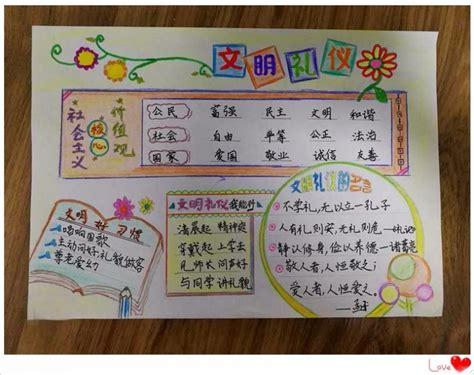 文明礼仪
社会主义
核心
价值观
公民 富强 民主 文明 和谐
社会 自由 平等 公正 法治
国家 爱国 敬业 诚信 友善
文明好习惯
唱响国歌
主动问好礼貌做客
尊老爱幼
文明礼仪我能行
清晨起 精神爽
穿戴起 上学去
见师长 问声好
与同学 讲礼貌
文明礼仪的名言
不学礼,无以立一孔子
人有礼则安,无礼则危—礼记
静以修身,俭以养德—诸葛亮
敬人者,人恒敬之;
爱人者,人恒爱之。
—孟子
Love